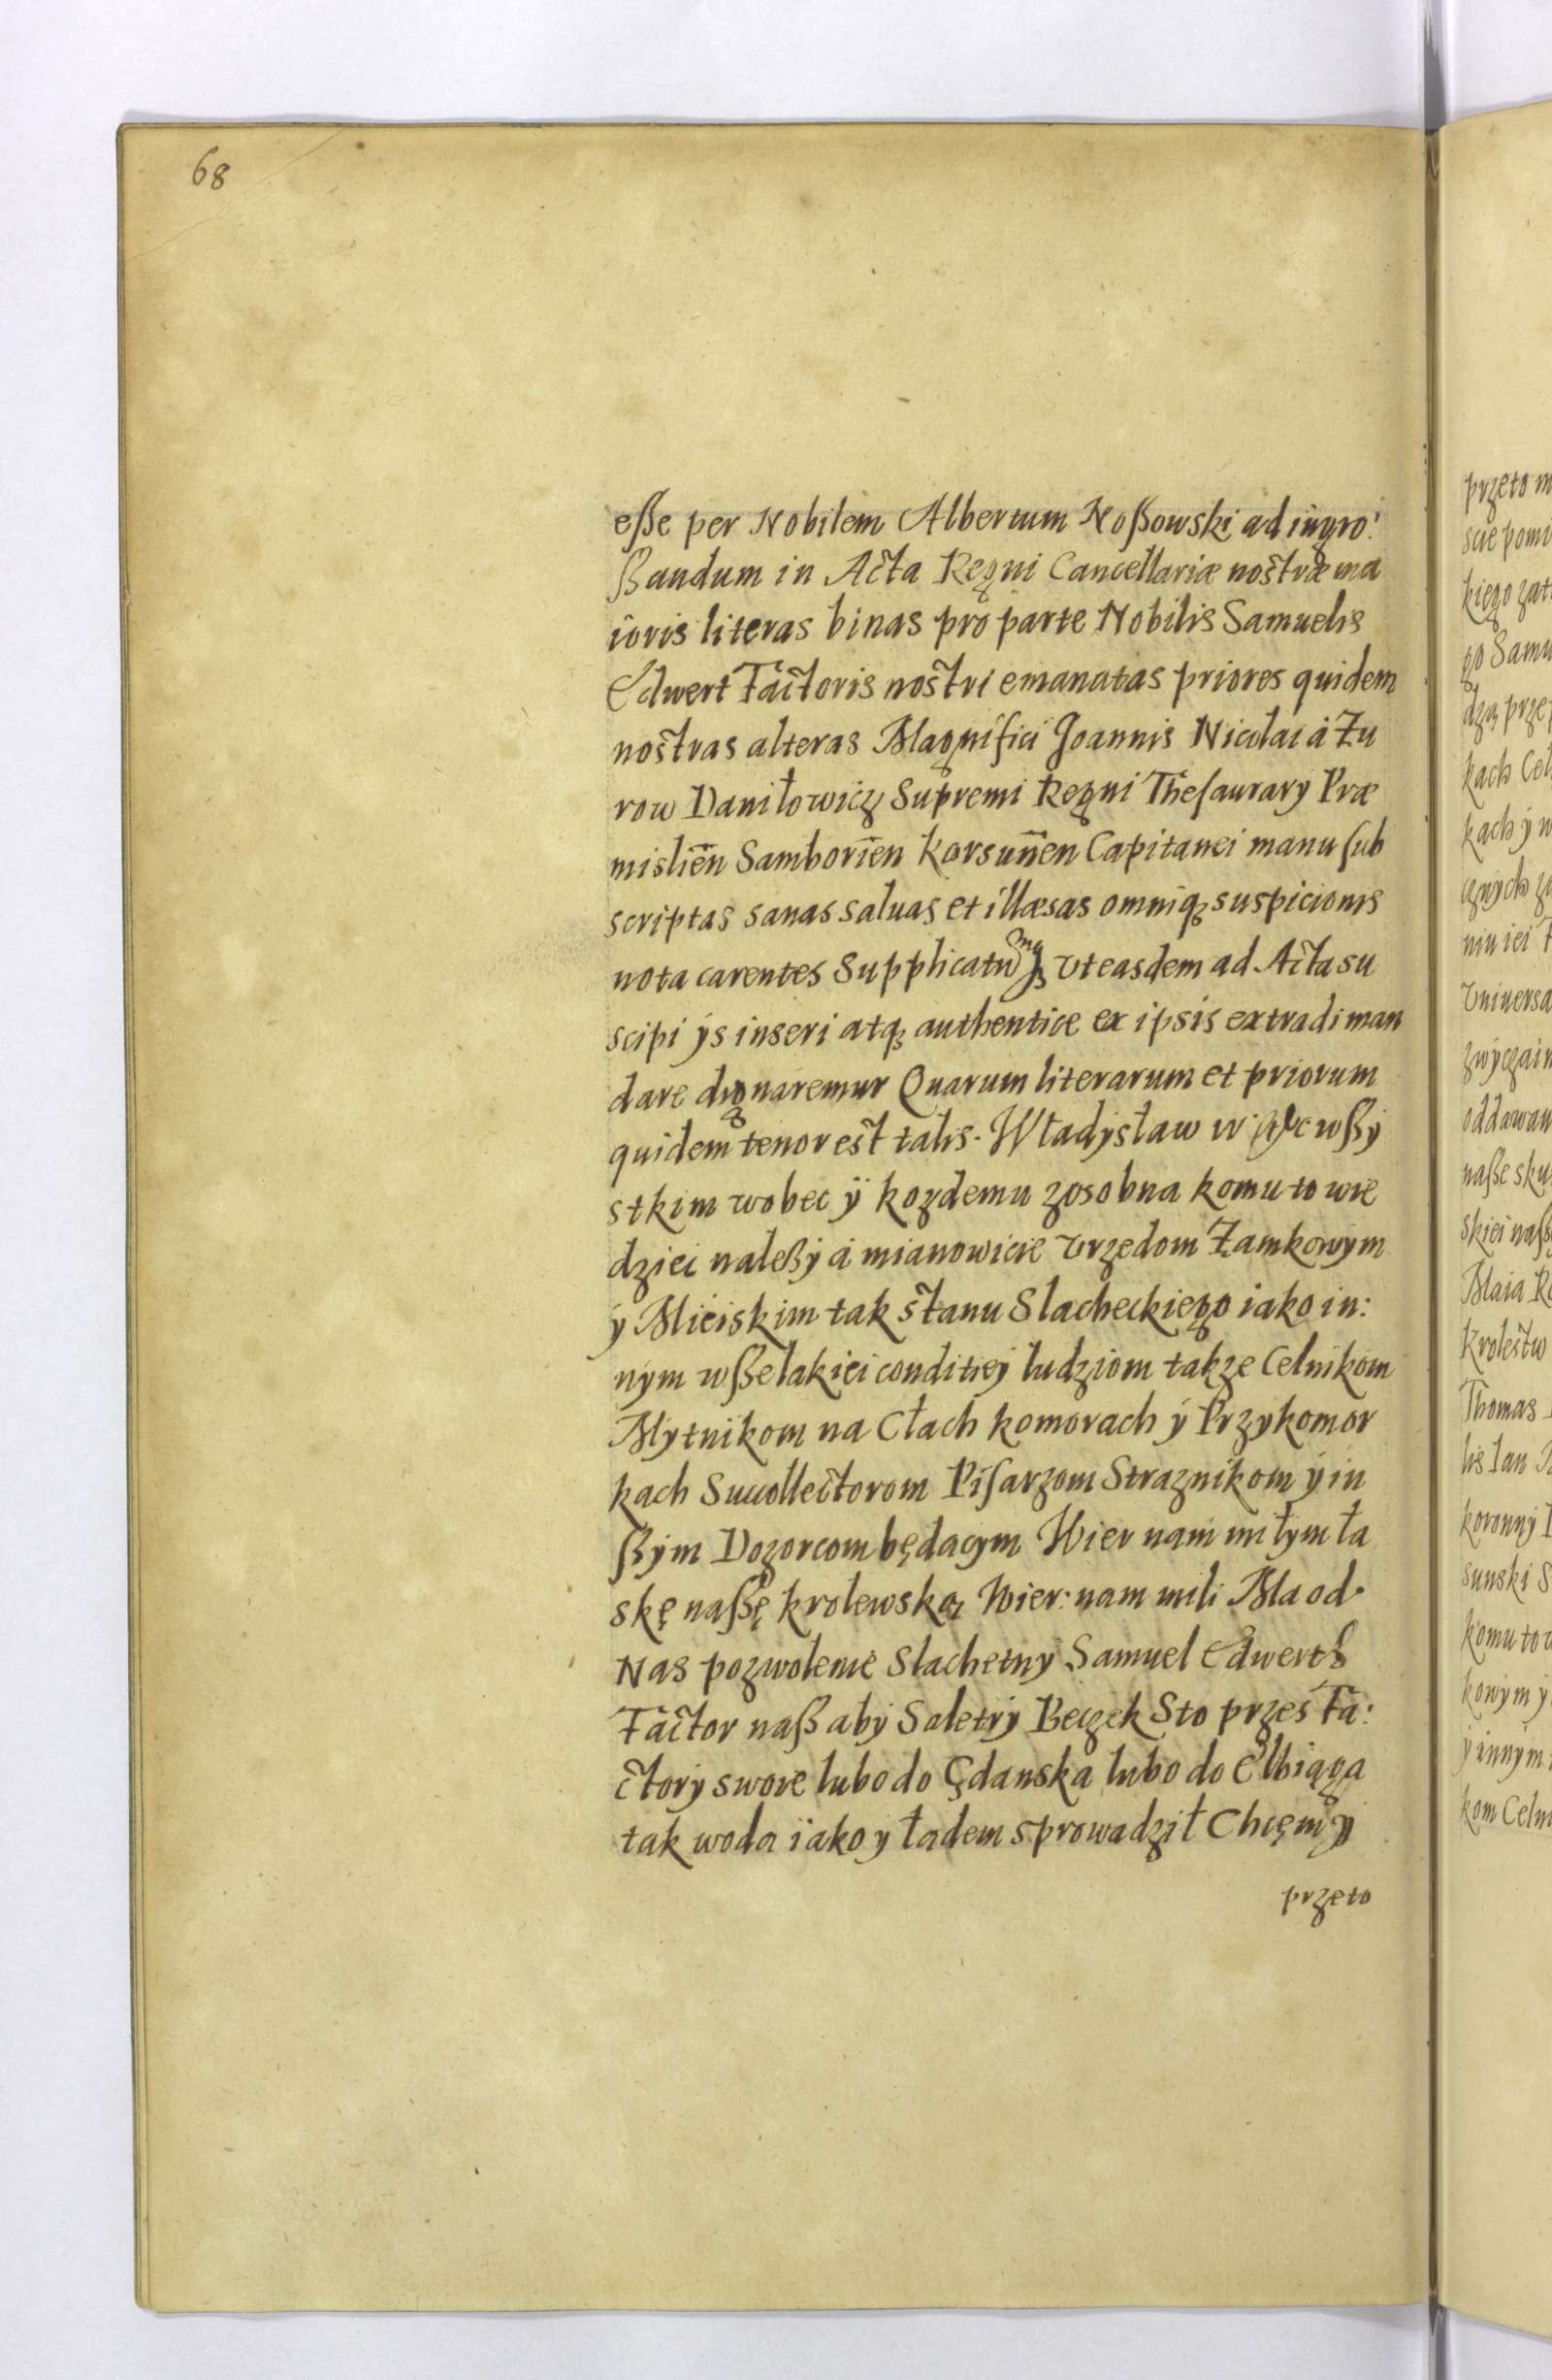 68
eße per Nobilem Albertum Noßowski ad ingro:
ßandum in Acta Regni Cancellariæ nostræ ma
ioris literas binas pro parte Nobilis Samuelis
Edwert Factoris nostri emanatas priores quidem
nostras alteras Magnifici Joannis Nicolai á Zu
row Daniłowicz Supremi Regni Thesaurarÿ Præ
mislien̄ Samborien̄ Korsun̄en Capitanei manu sub
scriptas sanas saluas et illæsas omniq; suspicionis
nota carentes Supplicatū vt easdem ad Acta su
scipi ÿs inseri atq; authentice ex ipsis extradi man
dare dignaremur Quarum literarum et priorum
quidem tenor est talis. Władÿsław IV &c wßÿ
stkim wobec ÿ kozdemu zosobna komu to wie
dziec naleßÿ á mianowicie Vrzedom Zamkowÿm
ÿ Mieiskim tak stanu Slacheckiego iako in:
nÿm wßelakiei conditieÿ ludziom takze Celnikom
Mÿtnikom na Cłach komorach ÿ Przÿkomor
kach Succollectorom Pisarzom Straznikom ÿ in
ßÿm Dozorcom będacÿm Wier nam miłym ła
skę naßę krolewską Wier: nam mili Ma od
Nas pozwolenie Slachetnÿ Samuel Edwerth
Factor naß abÿ Saletrÿ Beczek Sto przes Fa:
ctorÿ swoie lubo do Gdanska lubo do Elbiąga
tak woda iako ÿ ładem sprowadził Chcęmÿ
przeto
przeto m
scie pomi
kiego zat
go Samu
dzą prze
kach Cel
kach ÿ w
cznÿch za
niu iei
Vniuersa
zwÿczain
oddawan
naße sku
skiei naß
Maia Ro
Krolestw
Thomas
lis Ian
koronnÿ
sunski S
komu to
kowÿm ÿ
ÿ innÿm
kom Celn